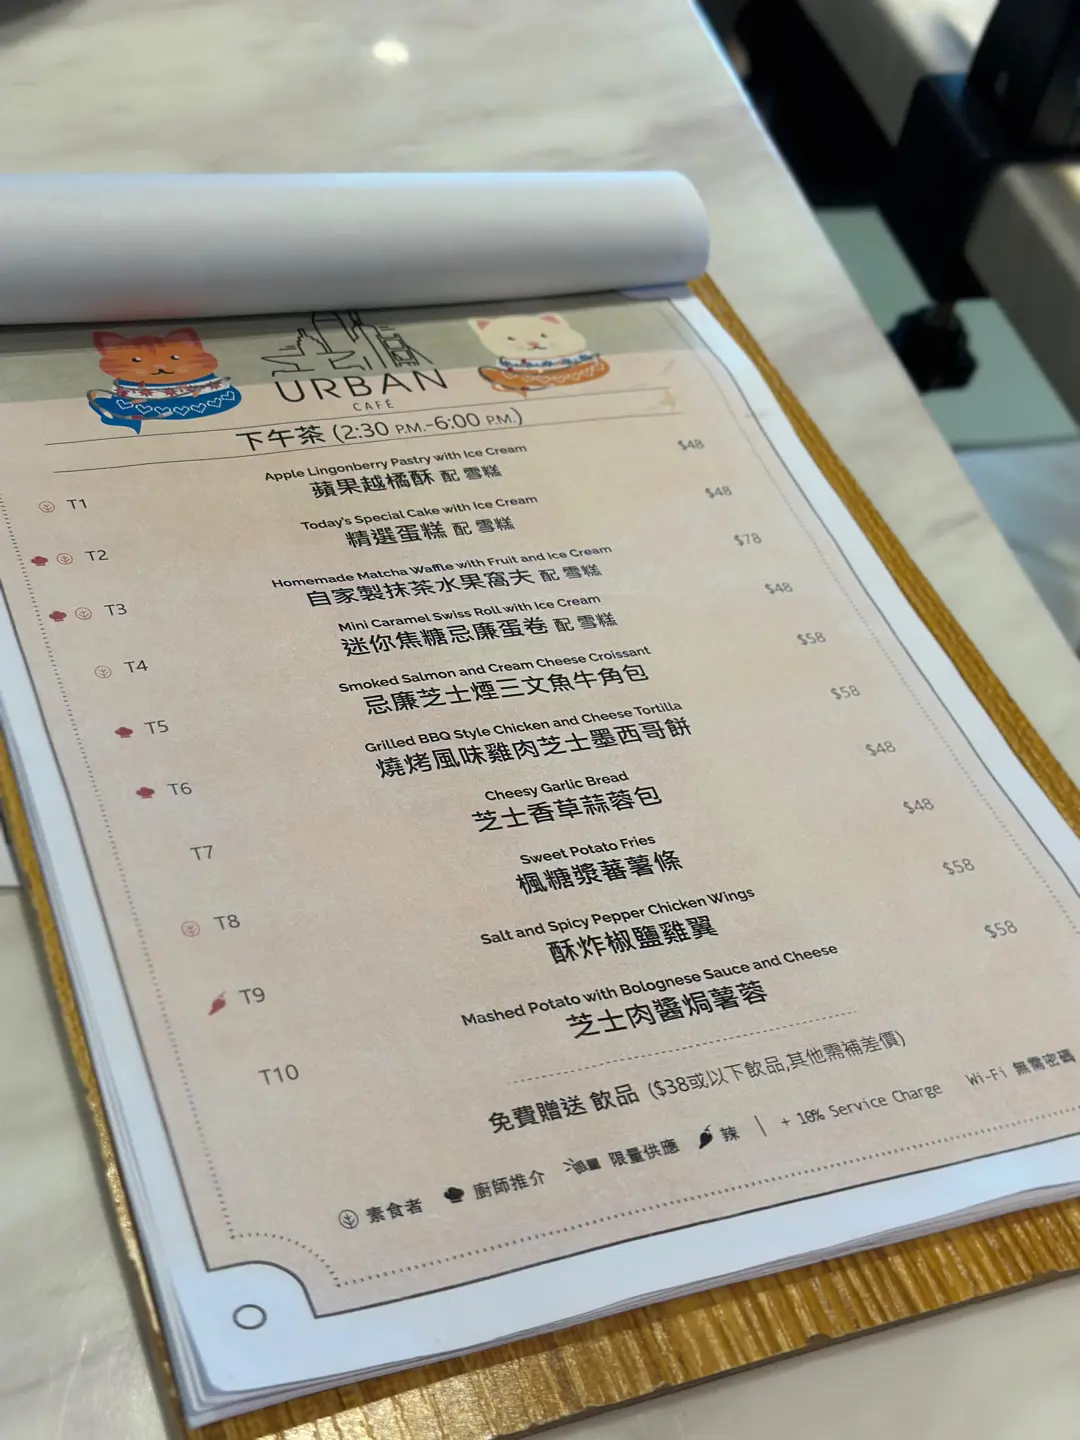 URBAN
CAFÉ
下午茶 (2:30 P.M.-6:00 P.M.)
Apple Lingonberry Pastry with Ice Cream
T1 蘋果越橘酥 配 雪糕 $48
Today's Special Cake with Ice Cream
T2 精選蛋糕 配 雪糕 $48
Homemade Matcha Waffle with Fruit and Ice Cream
T3 自家製抹茶水果窩夫 配 雪糕 $78
Mini Caramel Swiss Roll with Ice Cream
T4 迷你焦糖忌廉蛋卷 配 雪糕 $48
Smoked Salmon and Cream Cheese Croissant
T5 忌廉芝士煙三文魚牛角包 $58
Grilled BBQ Style Chicken and Cheese Tortilla
T6 燒烤風味雞肉芝士墨西哥餅 $58
Cheesy Garlic Bread
T7 芝士香草蒜蓉包 $48
Sweet Potato Fries
T8 楓糖漿蕃薯條 $48
Salt and Spicy Pepper Chicken Wings
T9 酥炸椒鹽雞翼 $58
Mashed Potato with Bolognese Sauce and Cheese
T10 芝士肉醬焗薯蓉 $58
免費贈送 飲品 ($38或以下飲品,其他需補差價)
素食者 廚師推介 限量供應 辣 | + 10% Service Charge Wi-Fi 無需密碼